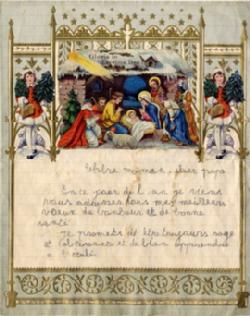 Gloria in
Chère maman, cher papa
En ce jour de l'an je viens
vous adresser tous mes meilleurs
vœux de bonheur et de bonne
santé.
Je promets de être toujours sage
et obéissance et de bien apprendre